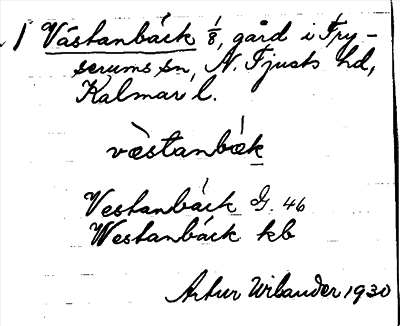 1 Västanbäck 1/8, gård i Fry-
serums sn, N. Tjusts hd,
Kalmar l.
vèstanbæk
Vestanbäck G. 46
Westanbäck kb
Artur Wilander 1930